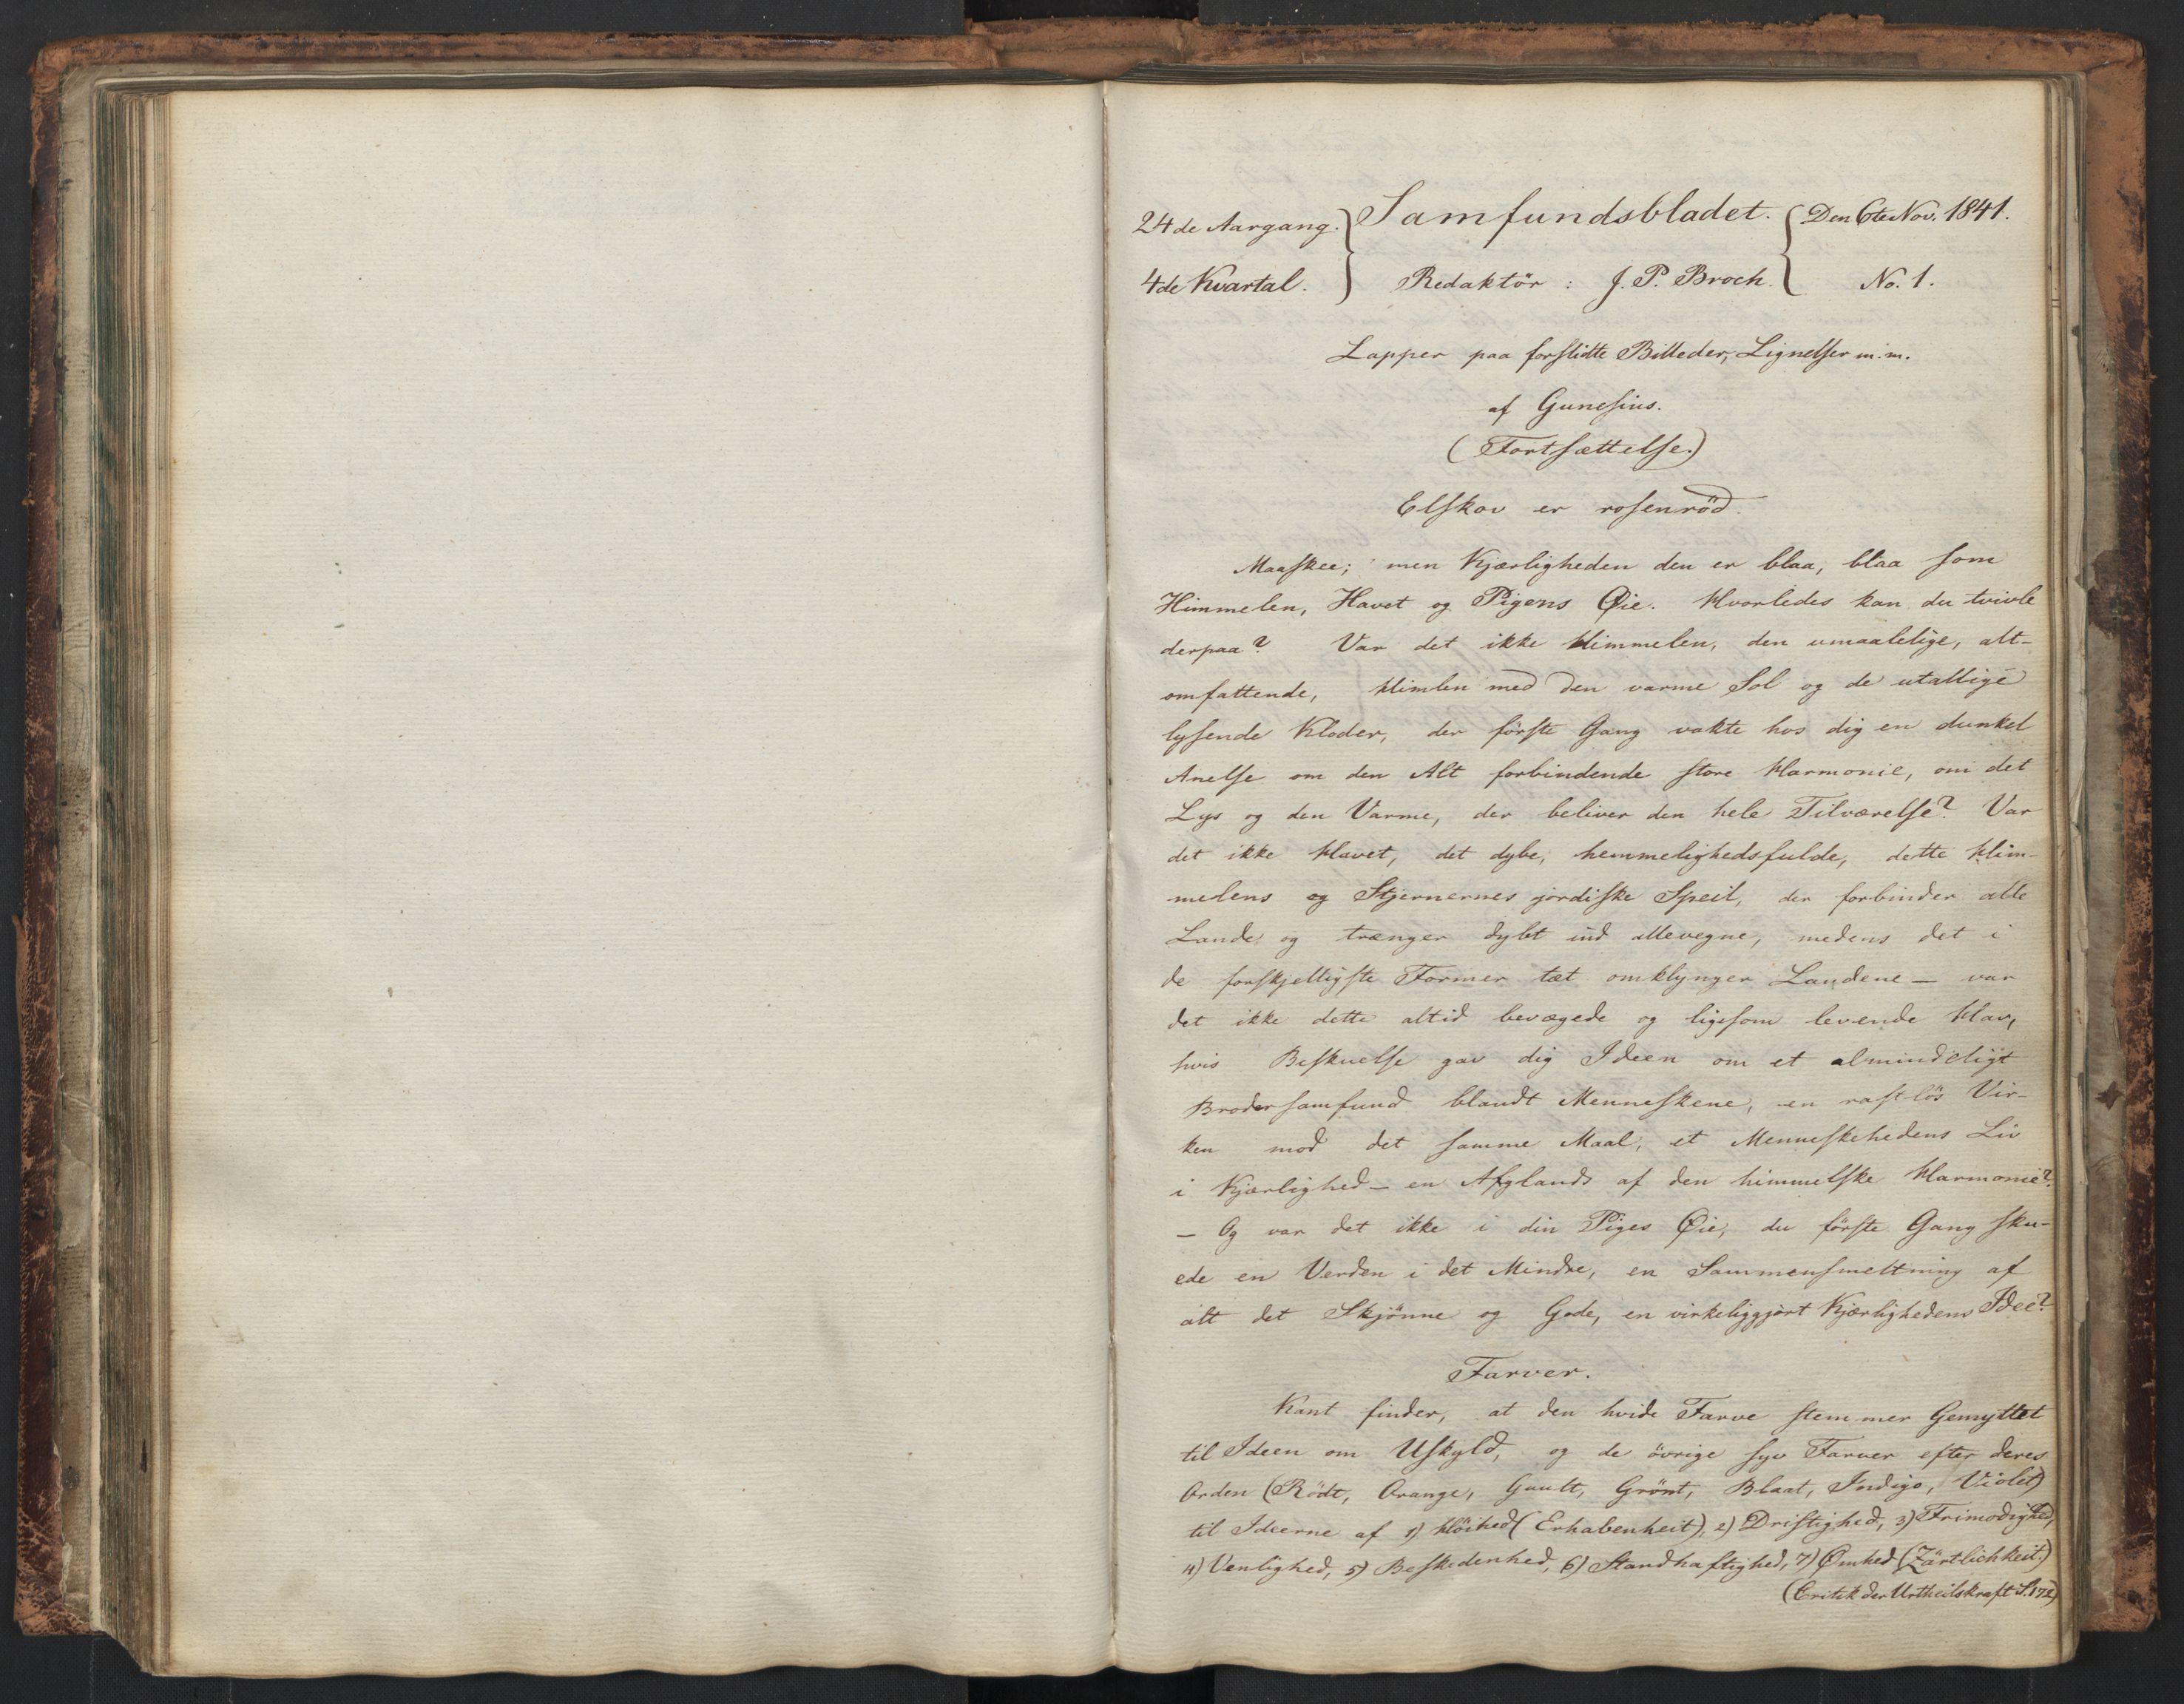 24de Aargang. } Samfundsbladet. { Den 6te Nov. 1841.
4de Kvartal. } Redaktör : J. P. Broch. { No. 1.
Lapper paa forslidte Billeder, Lignelser m. m.
af Gunesius.
(Fortsættelse.)
Elskov er rosenröd.
Maaskee; men Kjærligheden den er blaa, blaa som
Himmelen, Havet og Pigens Øie. Hvorledes kan du tvivle
derpaa? Var det ikke Himmelen, den umaalelige, alt-
omfattende, Himlen med den varme Sol og de utallige
lysende Kloder, der förste Gang vakte hos dig en dunkel
Anelse om den Alt forbindende store Harmonie, om det
Lys og den Varme, der beliver den hele Tilværelse? Var
det ikke Havet, det dybe, hemmelighedsfulde, dette Him-
melens og Stjernernes jordiske Speil, der forbinder alle
Lande og trænger dybt ind allevegne, medens det i
de forskjelligste Former tæt omklynger Landene — var
det ikke dette altid bevægede og ligesom levende Hav,
hvis Beskuelse gav dig Ideen om et almindeligt
Brodersamfund blandt Menneskene, en rastlös Vir-
ken mod det samme Maal, et Menneskehedens Liv
i Kjærlighed — en Afglands af den himmelske Harmonie?
— Og var det ikke i din Piges Øie, du förste Gang sku-
ede en Verden i det Mindre, en Sammensmeltning af
alt det Skjönne og Gode, en virkeliggjort Kjærlighedens Idee?
Farver.
Kant finder, at den hvide Farve stemmer Gemyttet
til Ideen om Uskyld, og de övrige syv Farver efter deres
Orden (Rödt, Orange, Guult, Grönt, Blaat, Indigo, Violet)
til Ideerne af 1) Höihed (Erhabenheit), 2) Dristighed, 3) Frimodighed,
4) Venlighed, 5) Beskedenhed, 6) Standhaftighed, 7) Ømhed (Zärtlichkeit.)
(Critik der Urtheilskraft S. 172)